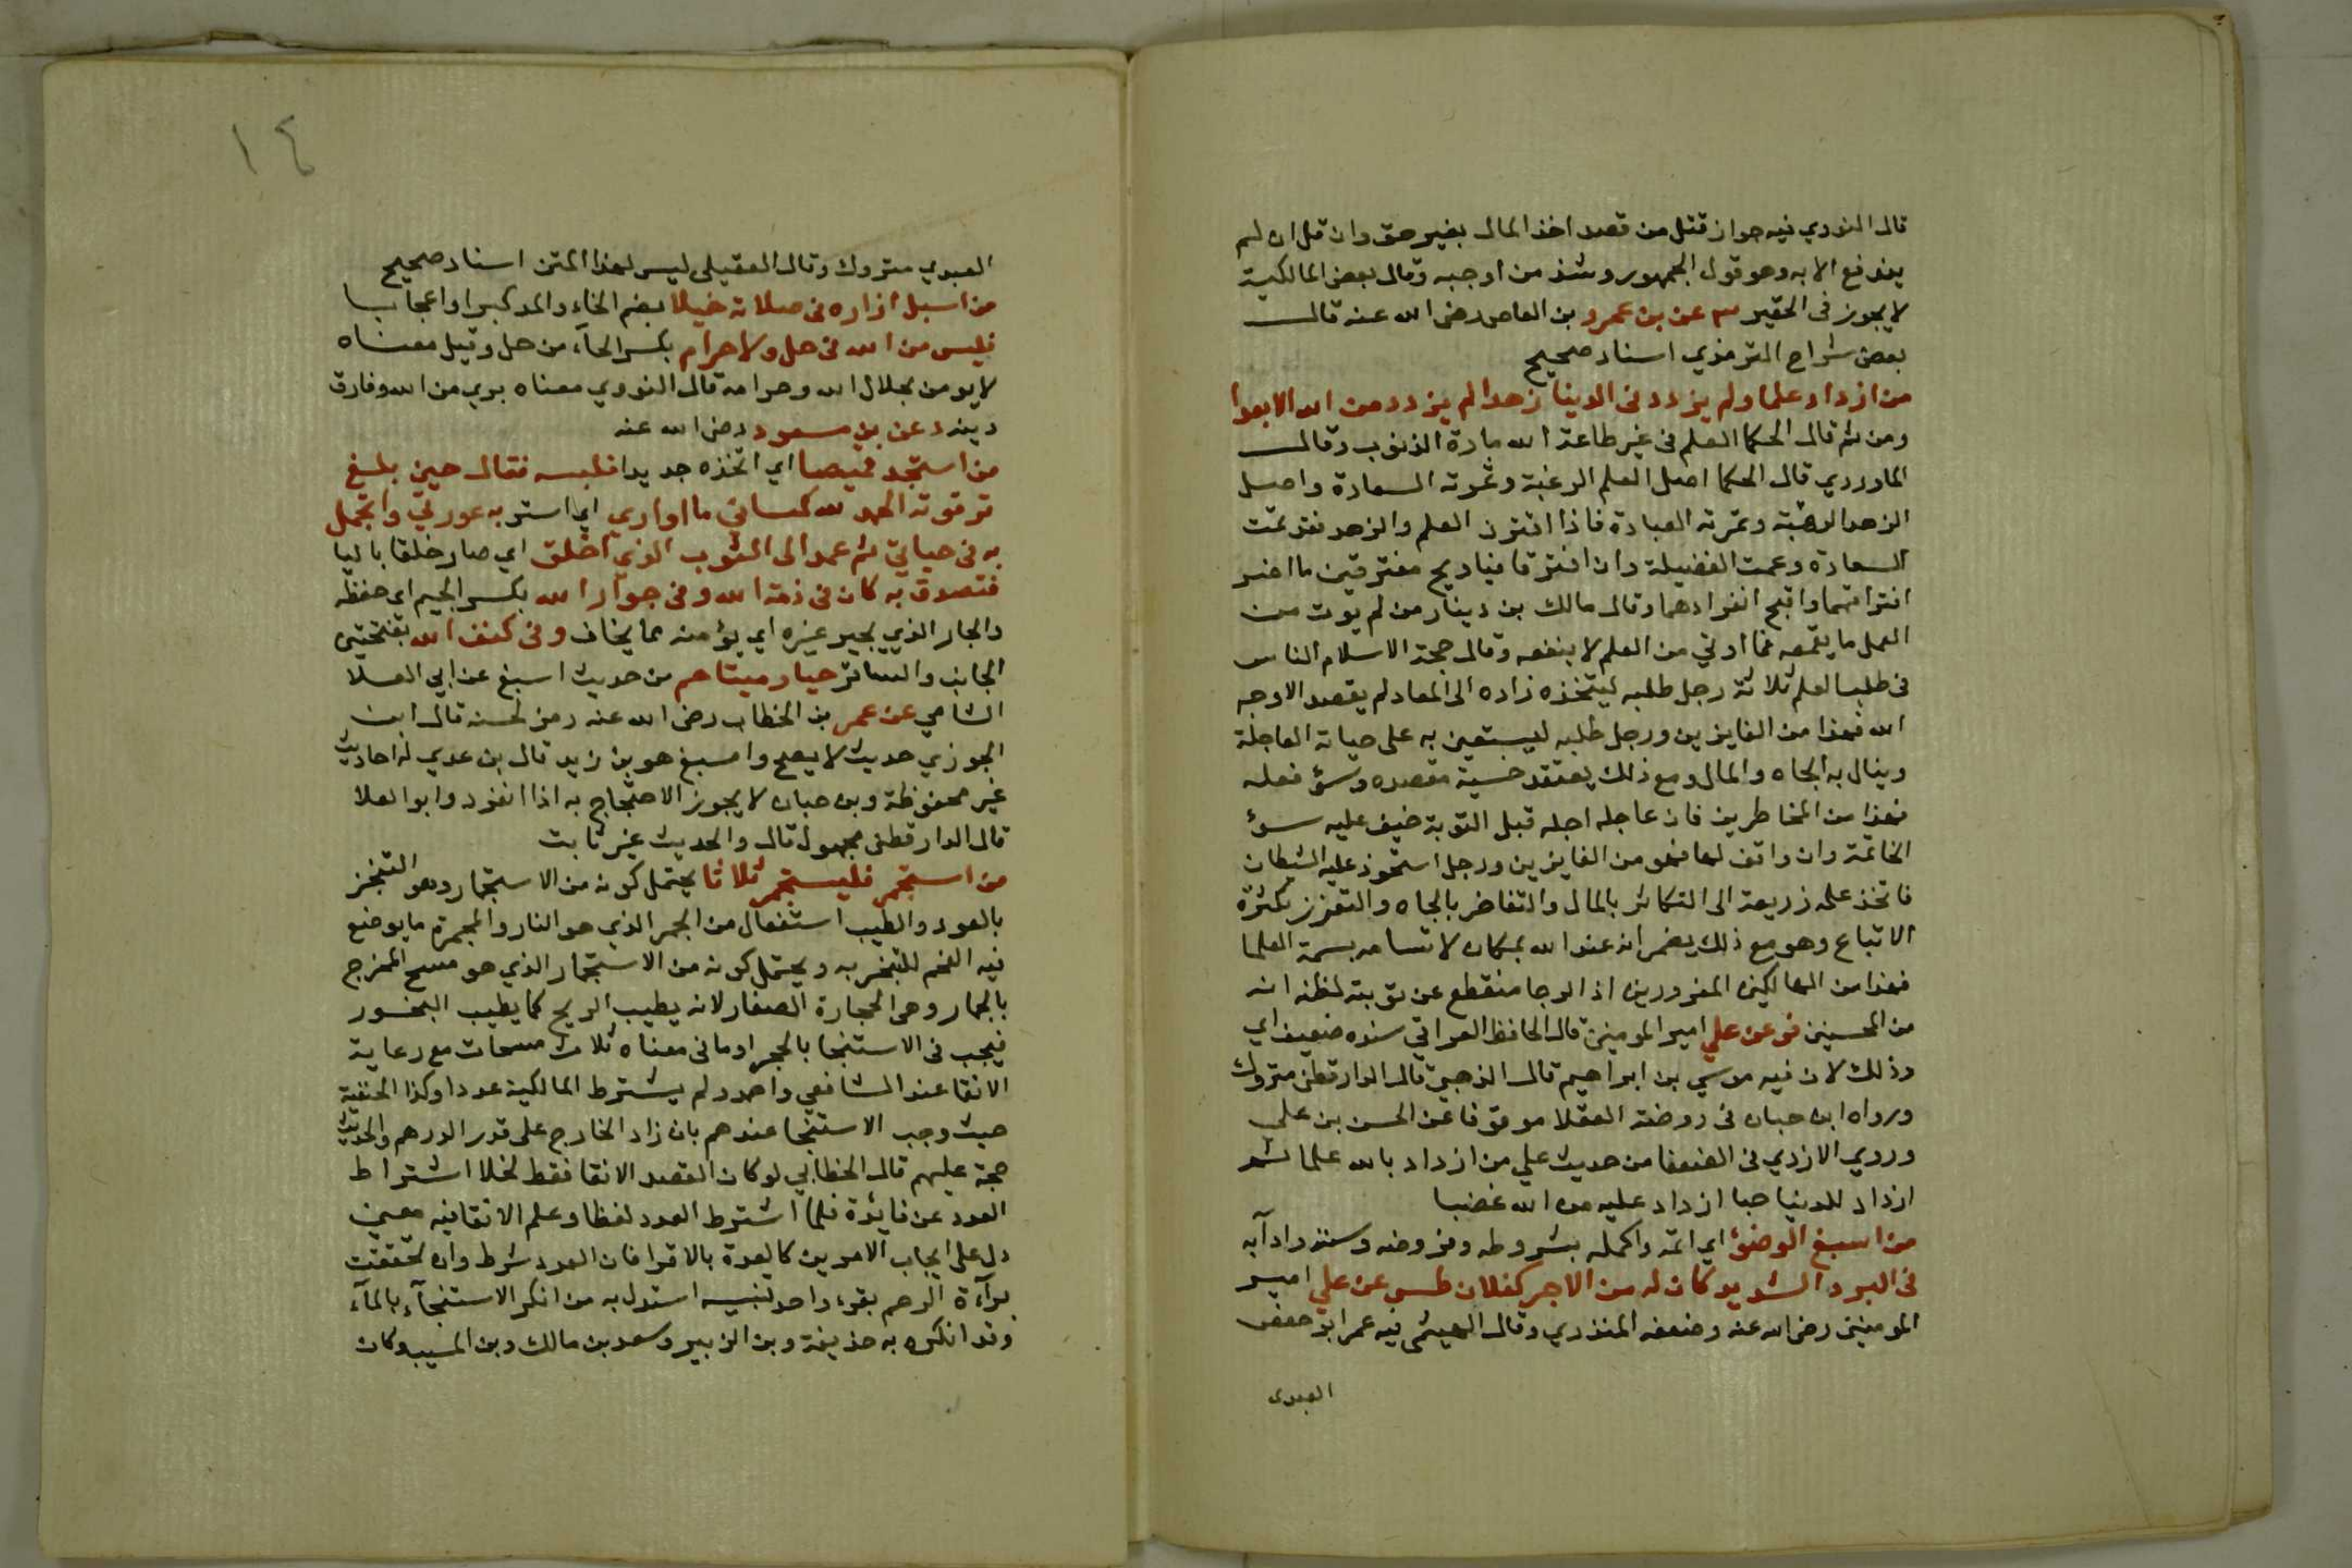 قال النووي فيه جواز قتل من قصد اخذ المال بغير حق وان قل ان لم
يندفع الا به وهو قول الجمهور وشذ من اوجبه وقال بعض المالكية
لا يجوز فى الحقير ٣ عن بن عمرو بن العاص رضى الله عنه قال
بعض شراح الترمذي اسناد صحيح
من ازداد علما ولم يزدد فى الدينا زهدا لم يزدد من الله الا بعدا
ومن ثم قال الحكما العلم فى غير طاعة الله مادة الذنوب وقال
الماوردي قال الحكما اصل العلم الرغبة وثمرته السعادة واصل
الزهد الرهبة وثمرته العبادة فاذا اقترن العلم والزهد فقد تمت
السعادة وعمت الفضيلة وان افترقا فياويح مفترقين ما اضر
افتراقهما واقبح انفرادهما وقال مالك بن دينار من لم يوت من
العمل ما يقمعه فما اوتي من العلم لا ينفعه وقال حجة الاسلام الناس
فى طلب العلم ثلاثة رجل طلبه ليتخذه زاده الى المعاد لم يقصد الا وجه
الله فهذا من الفايزين ورجل طلبه ليستعين به على حياته العاجلة
وينال به الجاه والمال ومع ذلك يعتقد خسية مقصده وسؤ فعله
فهذا من المخاطرين فان عاجله اجله قبل التوبة خيف عليه سؤ
الخاتمة وان وافق لها فهو من الفايزين ورجل استحوذ عليه الشيطان
فاتخذ علمه زريعة الى التكاثر بالمال والتفاخر بالجاه والتعزز بكثرة
الاتباع وهو مع ذلك يضمر انه عند الله بمكان لاتسامه بسمة العلما
فهذا من الهالكين المغرورين اذ الرجا منقطع عن توبته لظنه انه
من المحسنين فر عن علي امير المومنين قال الحافظ العراقي سنده ضعيف اي
وذلك لان فيه موسي بن ابراهيم قال الذهبي قال الدارقطنى متروك
ورواه ابن حبان فى روضة العقلا موقوفا عن الحسن بن على
وروي الازدي فى الضعفا من حديث علي من ازداد بالله علما ثم
ازداد للدنيا حبا ازداد عليه من الله غضبا
من اسبغ الوضؤ اي اتمه واكمله بشروطه وفروضه وسننه وادآبه
فى البرد الشديد كان له من الاجر كفلان طس عن علي امير
المومنين رضى الله عنه وضعفه المنذري وقال الهيثمى فيه عمر ابو حفص
العبدى
١٤
العبدي متروك وقال العقيلى ليس لهذا المتن اسناد صحيح
من اسبل ازاره فى صلاته خيلا بضم الخاء والمد كبرا واعجابا
فليس من الله فى حل ولا حرام بكسر الحآء من حل وقيل معناه
لا يومن بحلال الله وحرامه قال النووي معناه بري من الله وفارق
دينه د عن بن مسعود رضى الله عنه
من استجد قميصا اي اتخذه جديدا فلبسه فقال حين بلغ
ترقوته الحمد لله كسانى ما اواري اي استر به عورتي واتجمل
به فى حياتي ثم عمد الى الثوب الذي اخلق اي صار خلقا باليا
فتصدق به كان فى ذمة الله وفى جوار الله بكسر الجيم اى حفظه
والجار الذي يجير غيره اي يؤمنه مما يخاف وفى كنف الله بفتحتين
الجانب والساتر حيا وميتا حم من حديث اسبغ عن ابي العلا
الشامي عن عمر بن الخطاب رضى الله عنه رمز لحسنه قال ابن
الجوزي حديث لا يصح واسبغ هو بن زيد قال بن عدي له احاديث
غير محفوظة وبن حبان لا يجوز الاحتجاج به اذا انفرد وابو العلا
قال الدارقطنى مجهول قال والحديث غير ثابت
من استجمر فليستجمر ثلاثا يحتمل كونه من الاستجمار وهو التبخر
بالعود والطيب استفعال من الجمر الذي هو النار والمجمرة ما يوضع
فيه الفحم للتبخر به ويحتمل كونه من الاستجمار الذي هو مسح المخرج
بالجمار وهى الحجارة الصغار لانه يطيب الريح كما يطيب البخور
فيجب فى الاستنجا بالحجر او مافى معناه ثلاث مسحات مع رعاية
الانقا عند الشافعي واحمد ولم يشترط المالكية عددا وكذا الحنفية
حيث وجب الاستنجا عندهم بان زاد الخارج على قدر الدرهم والحديث
حجة عليهم قال الخطابي لو كان القصد الانقا فقط لخلا اشتراط
العدد عن فايدة فلما اشترط العدد لفظا وعلم الانقا فيه معنى
دل على ايجاب الامرين كالعدة بالاقرا فان العدد شرط وان تحققت
برآءة الرحم بقرء واحد تنبيه استدل به من انكر الاستنجآء بالمآء
وقد انكره به حذيفة وبن الزبير وسعد بن مالك وبن المسيب وكان